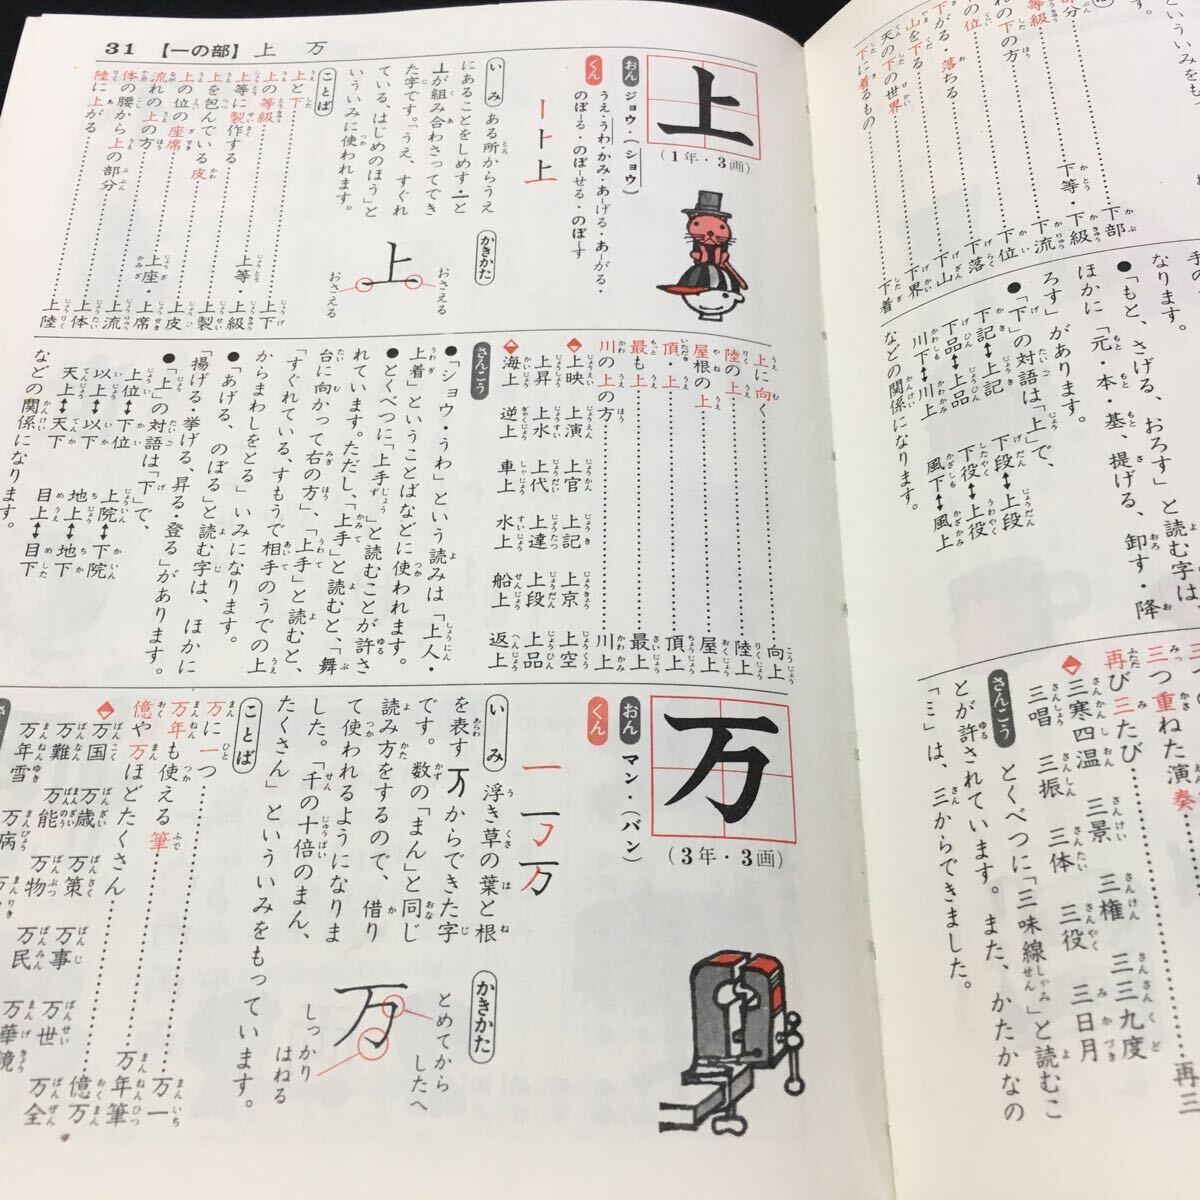 部分
等級
の位
下の方
がる・落ちる
山を下る
天の下の世界
下に着るもの
下部
下等・下級
下流
下位
下落
下山
下界
下着
なります。
●「もと、さげる、おろす」と読む字は
ほかに「元・本・基、提げる、卸す・降
ろす」があります。
●「下」の対語は「上」で、
下記↔上記 下段↔上段
下品↔上品 下役↔上役
川下↔川上 風下↔風上
などの関係になります。
三つ重ねた演奏
再び三たび
再三
三寒四温 三景 三権 三三九度
三唱 三振 三体 三役 三日月
さんこう とくべつに「三味線」と読むこ
とが許されています。また、かたかなの
「ミ」は、三からできました。
31 【一の部】 上 万
上
(1年・3画)
おん ジョウ・(ショウ)
くん うえ・うわ・かみ・あ-げる・あ-がる・
のぼ-る・のぼ-せる・のぼ-す
いみ ある所からうえ
にあることをしめす・一と
が組み合わさってでき
た字です。「うえ、すぐれ
ている、はじめのほう」と
いういみに使われます。
かきかた
上
おさえる
おさえる
ことば
上と下 上下
上の等級 上等・上級
上等に製作する 上製
上を包んでいる皮 上皮
上の位の座席 上座・上席
流れの上の方 上流
体の腰から上の部分 上体
陸に上がる 上陸
上に向く 向上
陸の上 陸上
屋根の上 屋上
頂・上 頂上
最も上 最上
川の上の方 川上
上映 上演 上官 上記 上京 上空
上昇 上水 上代 上達 上段 上品
海上 逆上 車上 水上 船上 返上
さんこう
●「ショウ・うわ」という読みは「上人・
上着」ということばなどに使われます。
●とくべつに「上手」と読むことが許さ
れています。ただし、「上手」と読むと、「舞
台に向かって右の方」、「上手」と読むと、
「すぐれている、すもうで相手のうでの上
からまわしをとる」いみになります。
●「あげる、のぼる」と読む字は、ほかに
「揚げる・挙げる、昇る・登る」があります。
●「上」の対語は「下」で、
上位↔下位 上院↔下院
以上↔以下 地上↔地下
天上↔天下 目上↔目下
などの関係になります。
万
(3年・3画)
おん マン・(バン)
くん
いみ 浮き草の葉と根
を表す万からできた字
です。数の「まん」と同じ
読み方をするので、借り
て使われるようになりま
した。「千の十倍のまん、
たくさん」といういみをもっています。
かきかた
万
とめてから
したへ
しっかり
はねる
ことば
万に一つ 万一
万年も使える筆 万年筆
億や万ほどたくさん 億万
万国 万歳 万策 万事 万世 万全
万難 万能 万物 万民 万華鏡
万年雪 万病